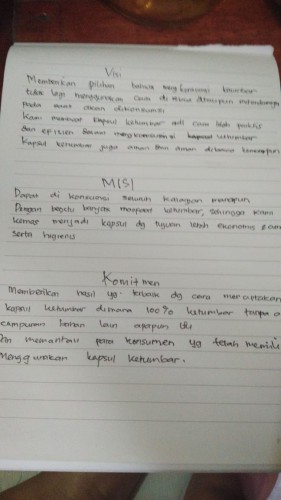 Visi
Memberikan pilihan bahwa mengkonsumsi ketumbar
tidak lagi menggunakan cara di seduh ataupun
pada saat akan dikonsumsi
Kami membuat kapsul ketumbar adl cara lebih praktis
dan efisien dalam mengkonsumsi kapsul ketumbar
Kapsul ketumbar juga aman dan aman dibawa kemanapun
MISI
Dapat di konsumsi seluruh kalangan manapun
Dengan begitu banyak manfaat ketumbar, sehingga kami
kemas menjadi kapsul dg tujuan lebih ekonomis
serta higienis
Komitmen
Memberikan hasil yg terbaik dg cara menciptakan
kapsul ketumbar dimana 100% ketumbar tanpa
campuran bahan lain apapun
memantau para konsumen yg telah
Menggunakan kapsul ketumbar.